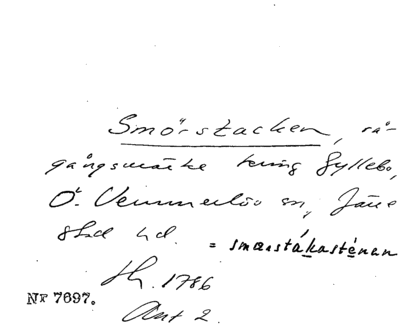 Smörstacken, rå-
gångsmärke kring Gyllebo,
Ö. Vemmerlöv sn, Järre-
stad hd. = smœrstákasténan
Sk. 1786
Ant 2.
Nr 7697.